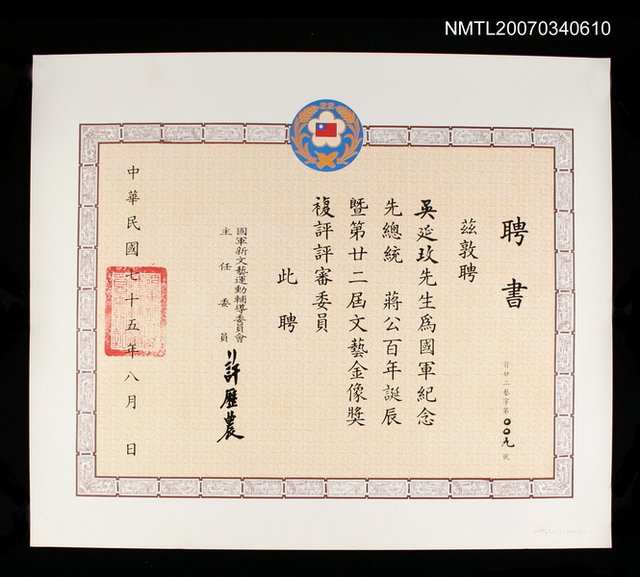 NMTL20070340610
22
聘書
官廿二藝字第〇〇九號
茲敦聘
吳延玫先生為國軍紀念
先總統 蔣公百年誕辰
暨第廿二屆文藝金像獎
複評評審委員
此聘
國軍新文藝運動輔導委員會
主任委員
許歷農
中華民國七十五年八月 日